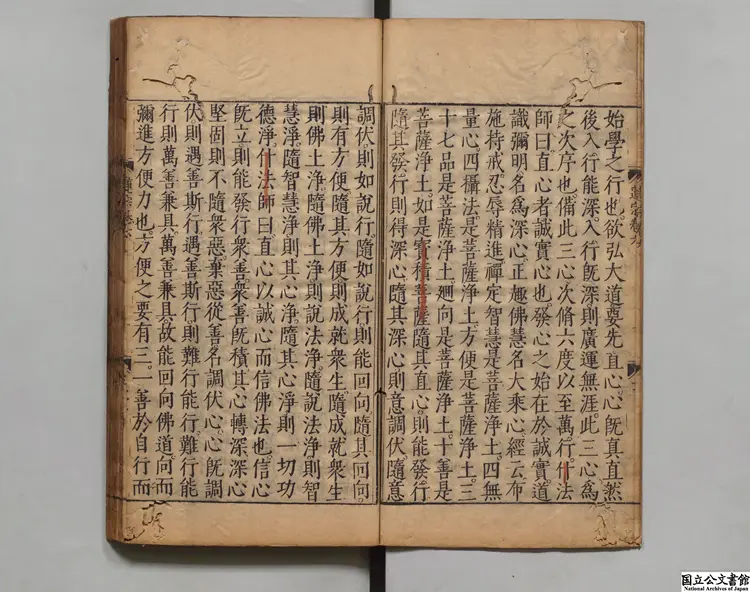 始學之行也欲弘大道要先直心心既真直然
後入行能深入行既深則廣運無涯此三心為
之次序也備此三心次脩六度以至萬行什法
師曰直心者誠實心也發心之始在於誠實道
識彌明名為深心正趣佛慧名大乘心經云布
施持戒忍辱精進禪定智慧是菩薩淨土四無
量心四攝法是菩薩淨土方便是菩薩淨土三
十七品是菩薩淨土廻向是菩薩淨土十善是
菩薩淨土如是寶積菩薩隨其直心則能發行
隨其發行則得深心隨其深心則意調伏隨意
調伏則如說行隨如說行則能回向隨其回向
則有方便隨其方便則成就眾生隨成就眾生
則佛土淨隨佛土淨則說法淨隨說法淨則智
慧淨隨智慧淨則其心淨隨其心淨則一切功
德淨什法師曰直心以誠心而信佛法也信心
既立則能發行眾善眾善既積其心轉深深心
堅固則不隨眾惡棄惡從善名調伏心心既調
伏則遇善斯行遇善斯行則難行能行難行能
行則萬善兼具萬善兼具故能回向佛道向而
彌進方便力也方便之要有三一善於自行而
国立公文書館
National Archives of Japan